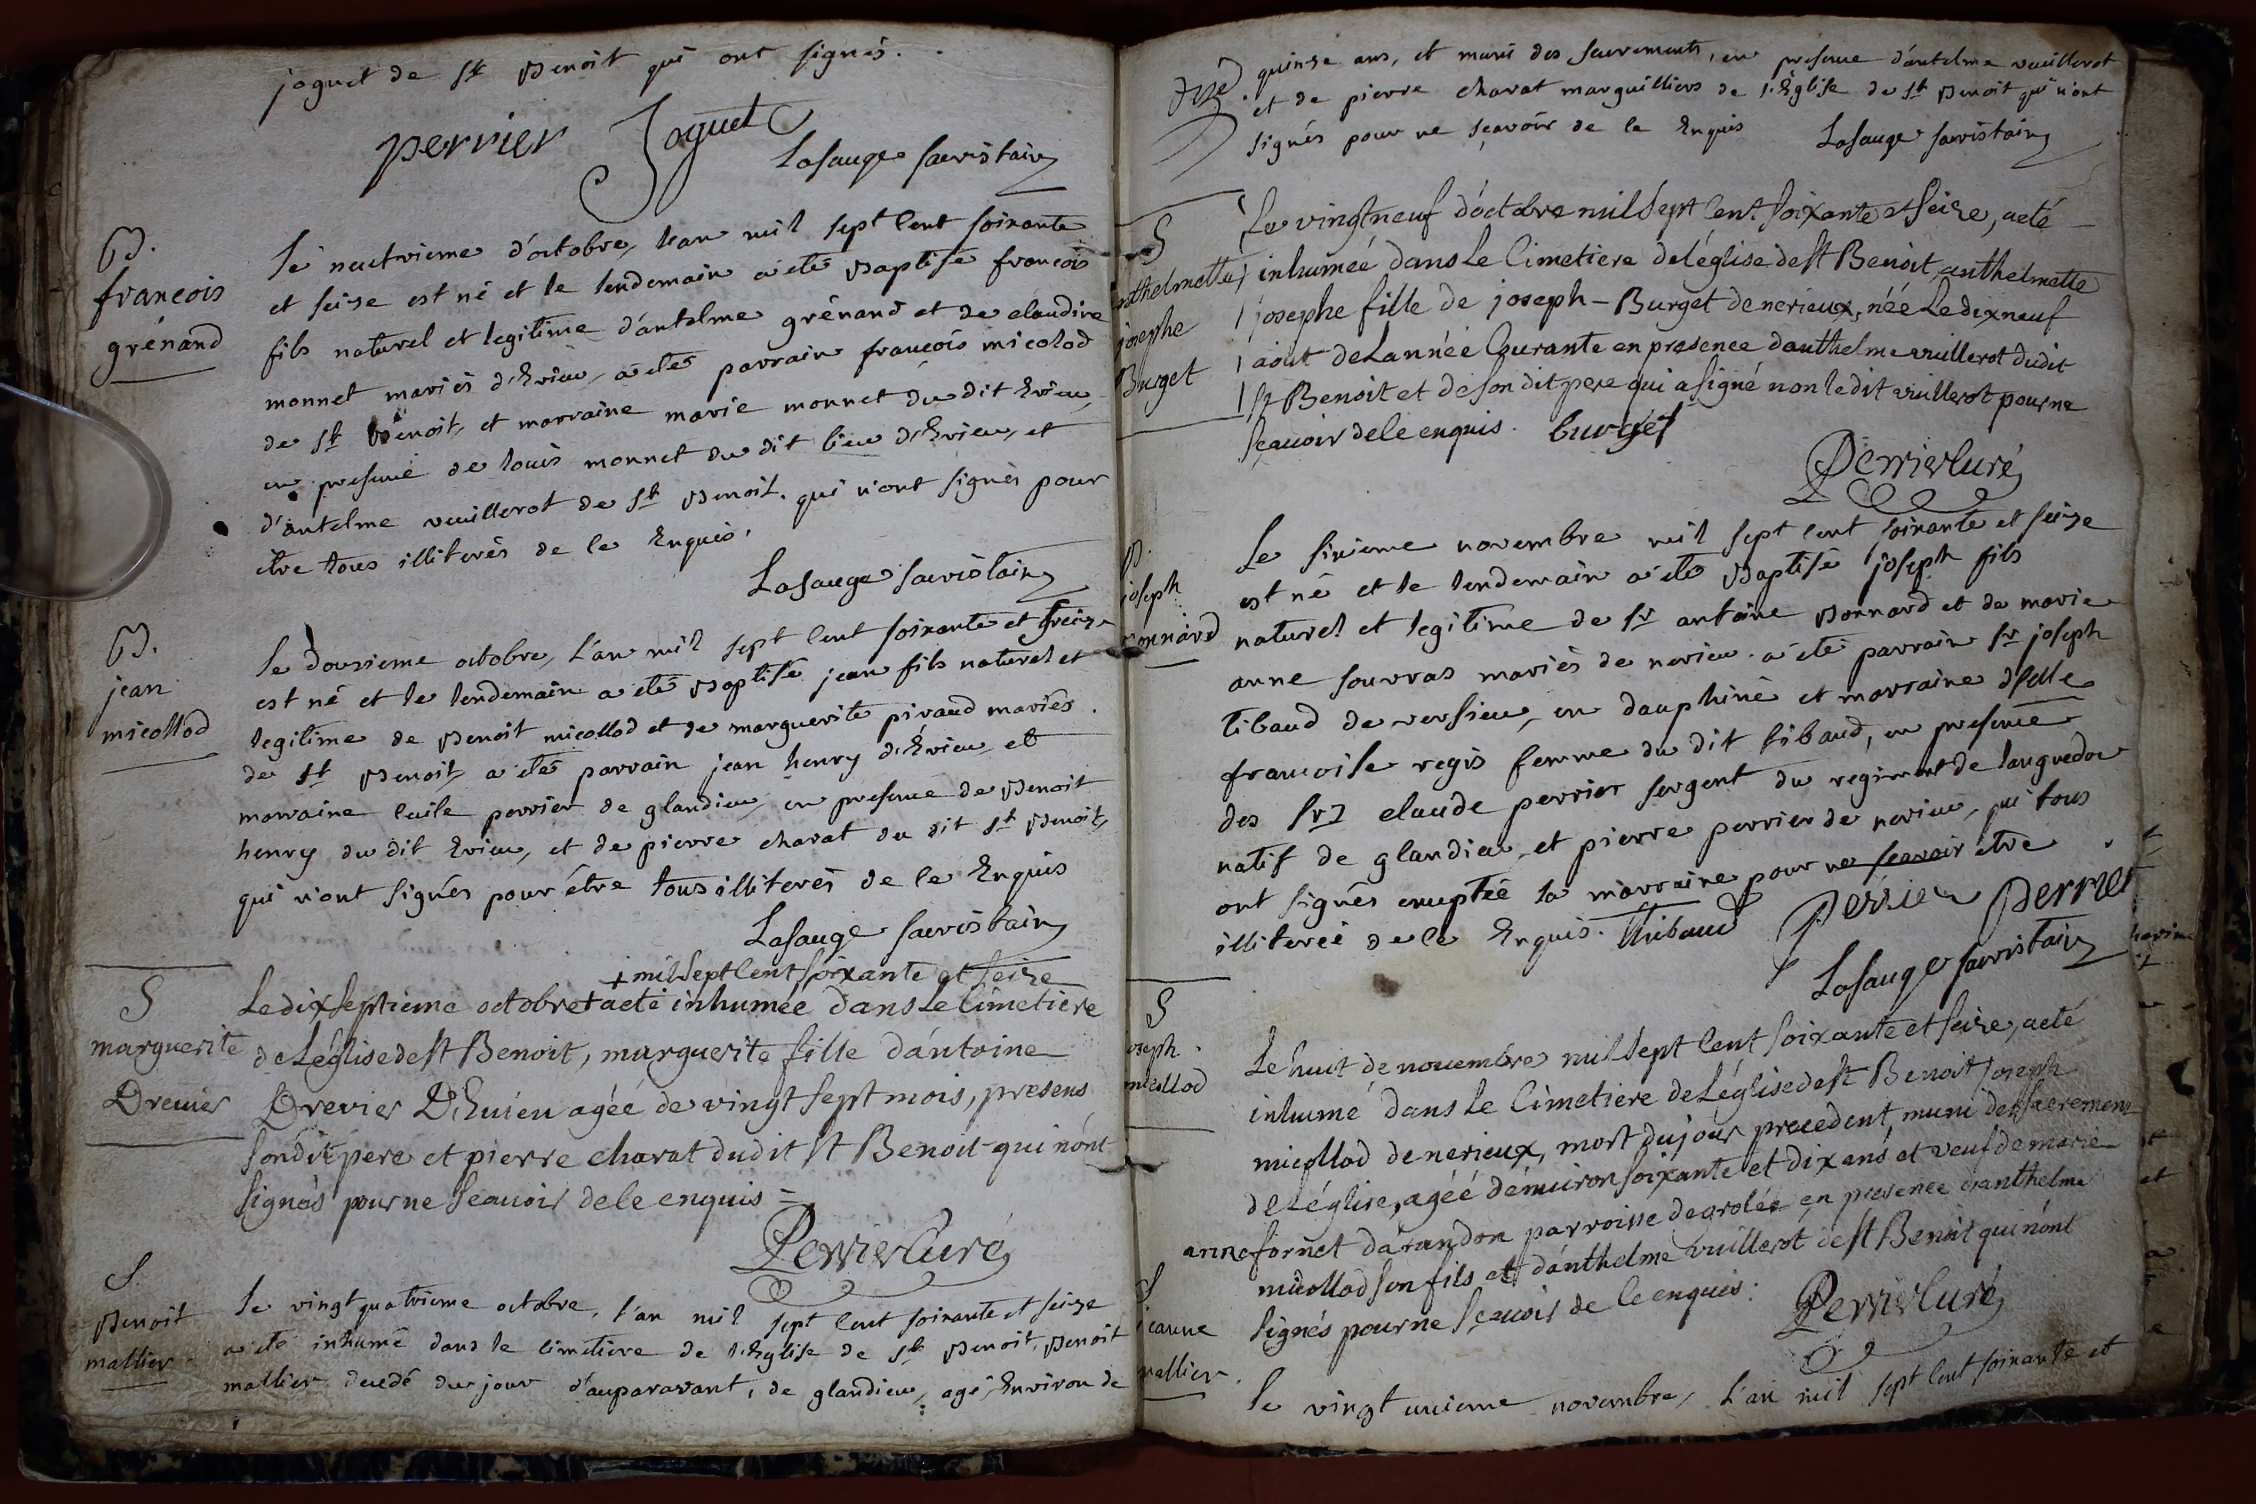 joguet de st Benoit qui ont signés.
perrier Joguet
Lasauge sacristain
B.
francois
grénand
le neuvieme d'octobre, l'an mil sept cent soixante
et seize est né et le lendemain a été Baptisé francois
fils naturel et legitime d'antelme grénand et de claudine
monnet mariés d'Evieu, a été parrain françois micolod
de st Benoit, et marraine marie monnet du dit Evieu,
en presence de louis monnet du dit lieu d'Evieu, et
d'antelme veuillerot de st Benoit. qui n'ont signés pour
etre tous illiterés de ce Enquis.
Lasauge sacristain
B.
jean
micollod
le douzieme octobre, l'an mil sept cent soixante et seize
est né et le lendemain a été Baptisé jean fils naturel et
legitime de Benoit micollod et de marguerite piraud mariés
de st Benoit, a été parrain jean henry d'Evieu et
marraine cecile perrier de glandieu, en presence de Benoit
henry du dit Evieu, et de pierre charat du dit st Benoit,
qui n'ont signés pour étre tous illiterés de ce Enquis
Lasauge sacristain
S
marguerite
Drevier
+ mil sept cent soixante et seize
Le dix septieme octobre + a eté inhumée dans Le Cimetiere
de L'église de st Benoit, marguerite fille d'antoine
Drevier D'Evieu agée de vingt sept mois, presens
sondit pere et pierre charat dudit st Benoit qui n'ont
signés pour ne scavoir de ce enquis =
Perrier Curé
S
Benoit
mallier
le vingt quatrieme octobre, l'an mil sept cent soixante et seize
a été inhumé dans le cimetiere de l'Eglise de st Benoit, Benoit
mallier decedé du jour d'auparavant, de glandieu, agé Environ de
quinze ans, et muni des sacrements, en presence d'antelme veuillerot
et de pierre charat marguilliers de l'Eglise de st Benoit qui n'ont
signés pour ne sçavoir de ce Enquis Lasauge sacristain
S
anthelmette
josephe
Burget
Le vingt neuf d'octobre mil sept cent soixante et seize, a eté
inhumée dans Le Cimetiere de l'église de st Benoit, anthelmette
josephe fille de joseph - Burget de nerieux, née Le dix neuf
aout de Lannée Courante en presence danthelme vuillerot dudit
st Benoit et de son dit pere qui a signé non ledit vuillerot pour ne
sçauoir de ce enquis. burget
Perrier Curé
B.
joseph
Bonnard
Le sixieme novembre mil sept cent soixante et seize
est né et le lendemain a été Baptisé joseph fils
naturel et legitime de sr antoine Bonnard et de marie
anne souvras mariés de nerieu. a été parrain sr joseph
tibaud de versieu, en dauphiné et marraine dslle
francoise regis femme du dit tibaud, en presence
des srs claude perrier sergent du regiment de languedoc
natif de glandieu, et pierre perrier de nerieu, qui tous
ont signés exceptée la marraine pour ne scavoir etre
illiterée de ce Enquis. Thibaud Perrier Perrier
Lasauge sacristain
S
joseph
micollod
Le huit de nouembre mil sept cent soixante et seize, a eté
inhumé dans le Cimetiere de L'église de st Benoit joseph
micollod de nerieux, mort du jour precedent, muni des sacremens
de L'église, agéé d'enuiron soixante et dix ans et veuf de marie
anne fornet d'arandon parroisse de arolée en presence d'anthelme
micollod son fils et d'anthelme vuillerot de st Benoit qui n'ont
signés pour ne sçauoir de ce enquis:
Perrier Curé
S
jeanne
mallier.
le vingt unieme novembre, l'an mil sept cent soixante et